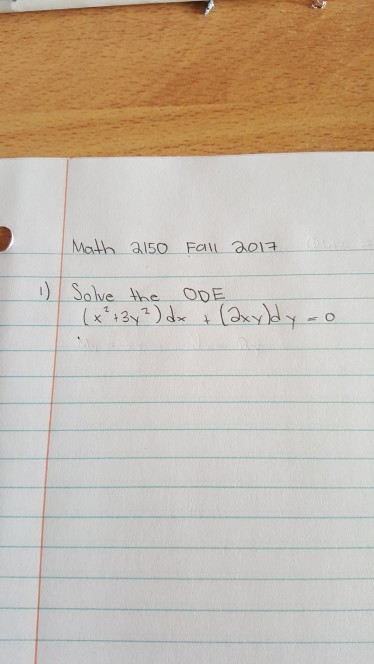 Math 2150 Fall 2017
1) Solve the ODE
(x²+3y²)dx + (2xy)dy = 0